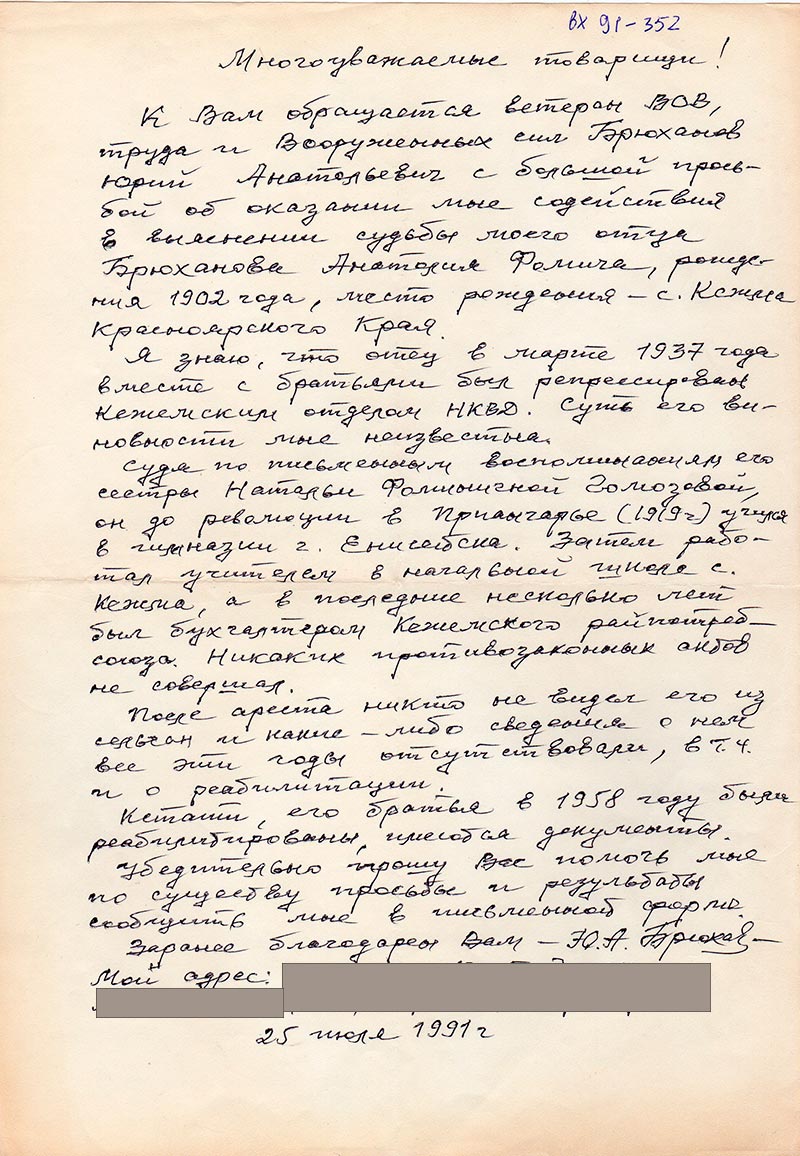 вх 91-352
Многоуважаемые товарищи!
К Вам обращается ветеран ВОВ,
труда и Вооруженных сил Брюханов
Юрий Анатольевич с большой прось-
бой об оказании мне содействия
в выяснении судьбы моего отца
Брюханова Анатолия Фомича, рожде-
ния 1902 года, место рождения – с. Кежма
Красноярского Края.
Я знаю, что отец в марте 1937 года
вместе с братьями был репрессирован
Кежемским отделом НКВД. Суть его ви-
новности мне неизвестна.
Судя по письменным воспоминаниям его
сестры Натальи Фоминичной Гомозовой,
он до революции в Приангарье (1919г) учился
в гимназии г. Енисейска. Затем рабо-
тал учителем в начальной школе с.
Кежма, а в последние несколько лет
был бухгалтером Кежемского райпотреб-
союза. Никаких противозаконных актов
не совершал.
После ареста никто не видел его из
сельчан и какие-либо сведения о нем
все эти годы отсутствовали, в т.ч.
и о реабилитации.
Кстати, его братья в 1958 году были
реабилитированы, имеются документы.
Убедительно прошу Вас помочь мне
по существу просьбы и результаты
сообщить мне в письменной форме.
Заранее благодарен Вам – Ю.А. Брюханов
Мой адрес:
25 июля 1991 г